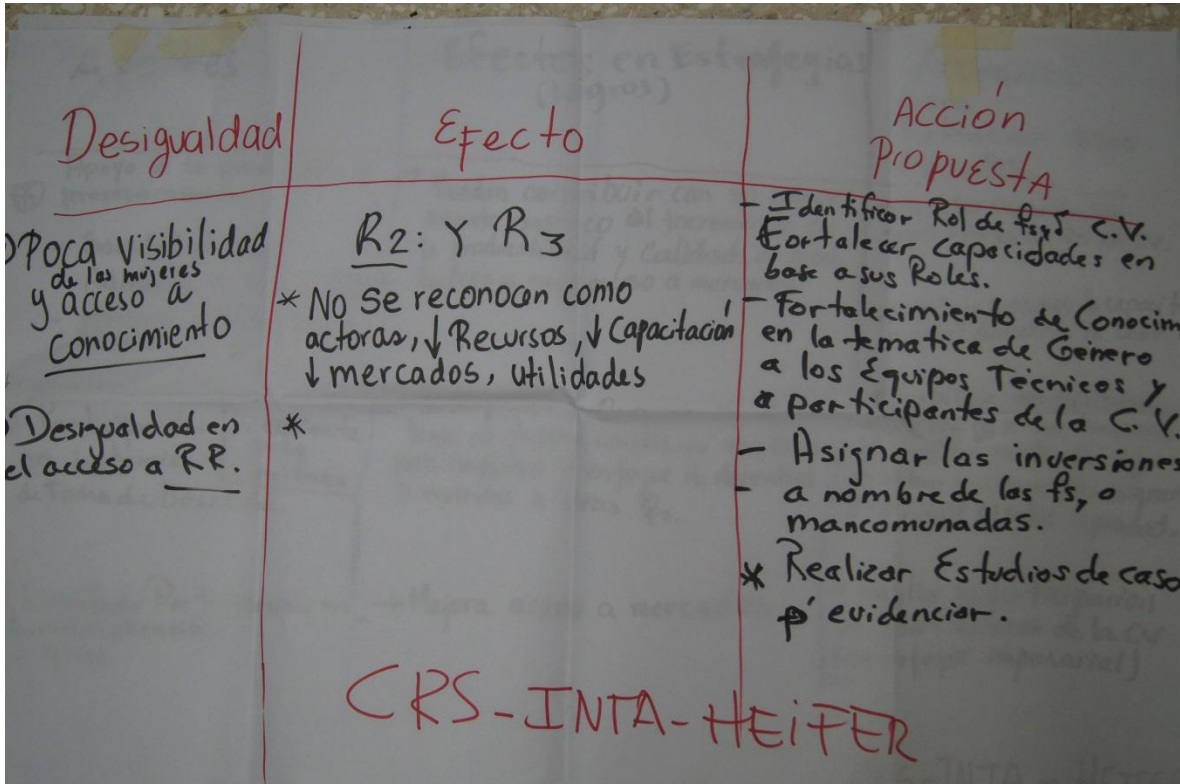 Desigualdad
Efecto
Acción
Propuesta
Poca Visibilidad
de las mujeres
y acceso a
Conocimiento
Desigualdad en
el acceso a RR.
R2: Y R3
* No se reconocen como
actoras, ↓ Recursos, ↓ Capacitación
↓ mercados, utilidades
*
- Identificar Rol de C.V.
Fortalecer capacidades en
base a sus Roles.
- Fortalecimiento de Conocim
en la tematica de Género
a los Equipos Técnicos y
a participantes de la C.V.
- Asignar las inversiones
- a nombre de las fs, o
mancomunadas.
* Realizar Estudios de caso
p' evidenciar.
CRS-INTA-HEiFER